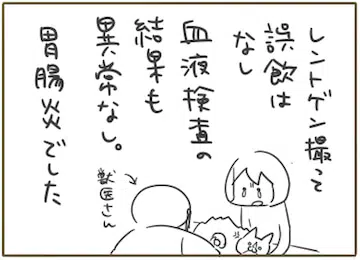 レントゲン撮って
誤飲は
なし
血液検査の
結果も
異常なし。
胃腸炎でした
獣医さん